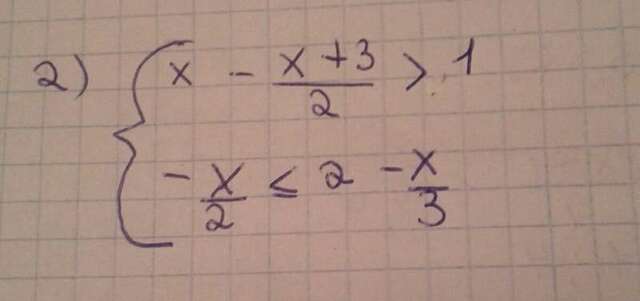 2) { x - (x+3)/2 > 1
-x/2 ≤ 2 - x/3